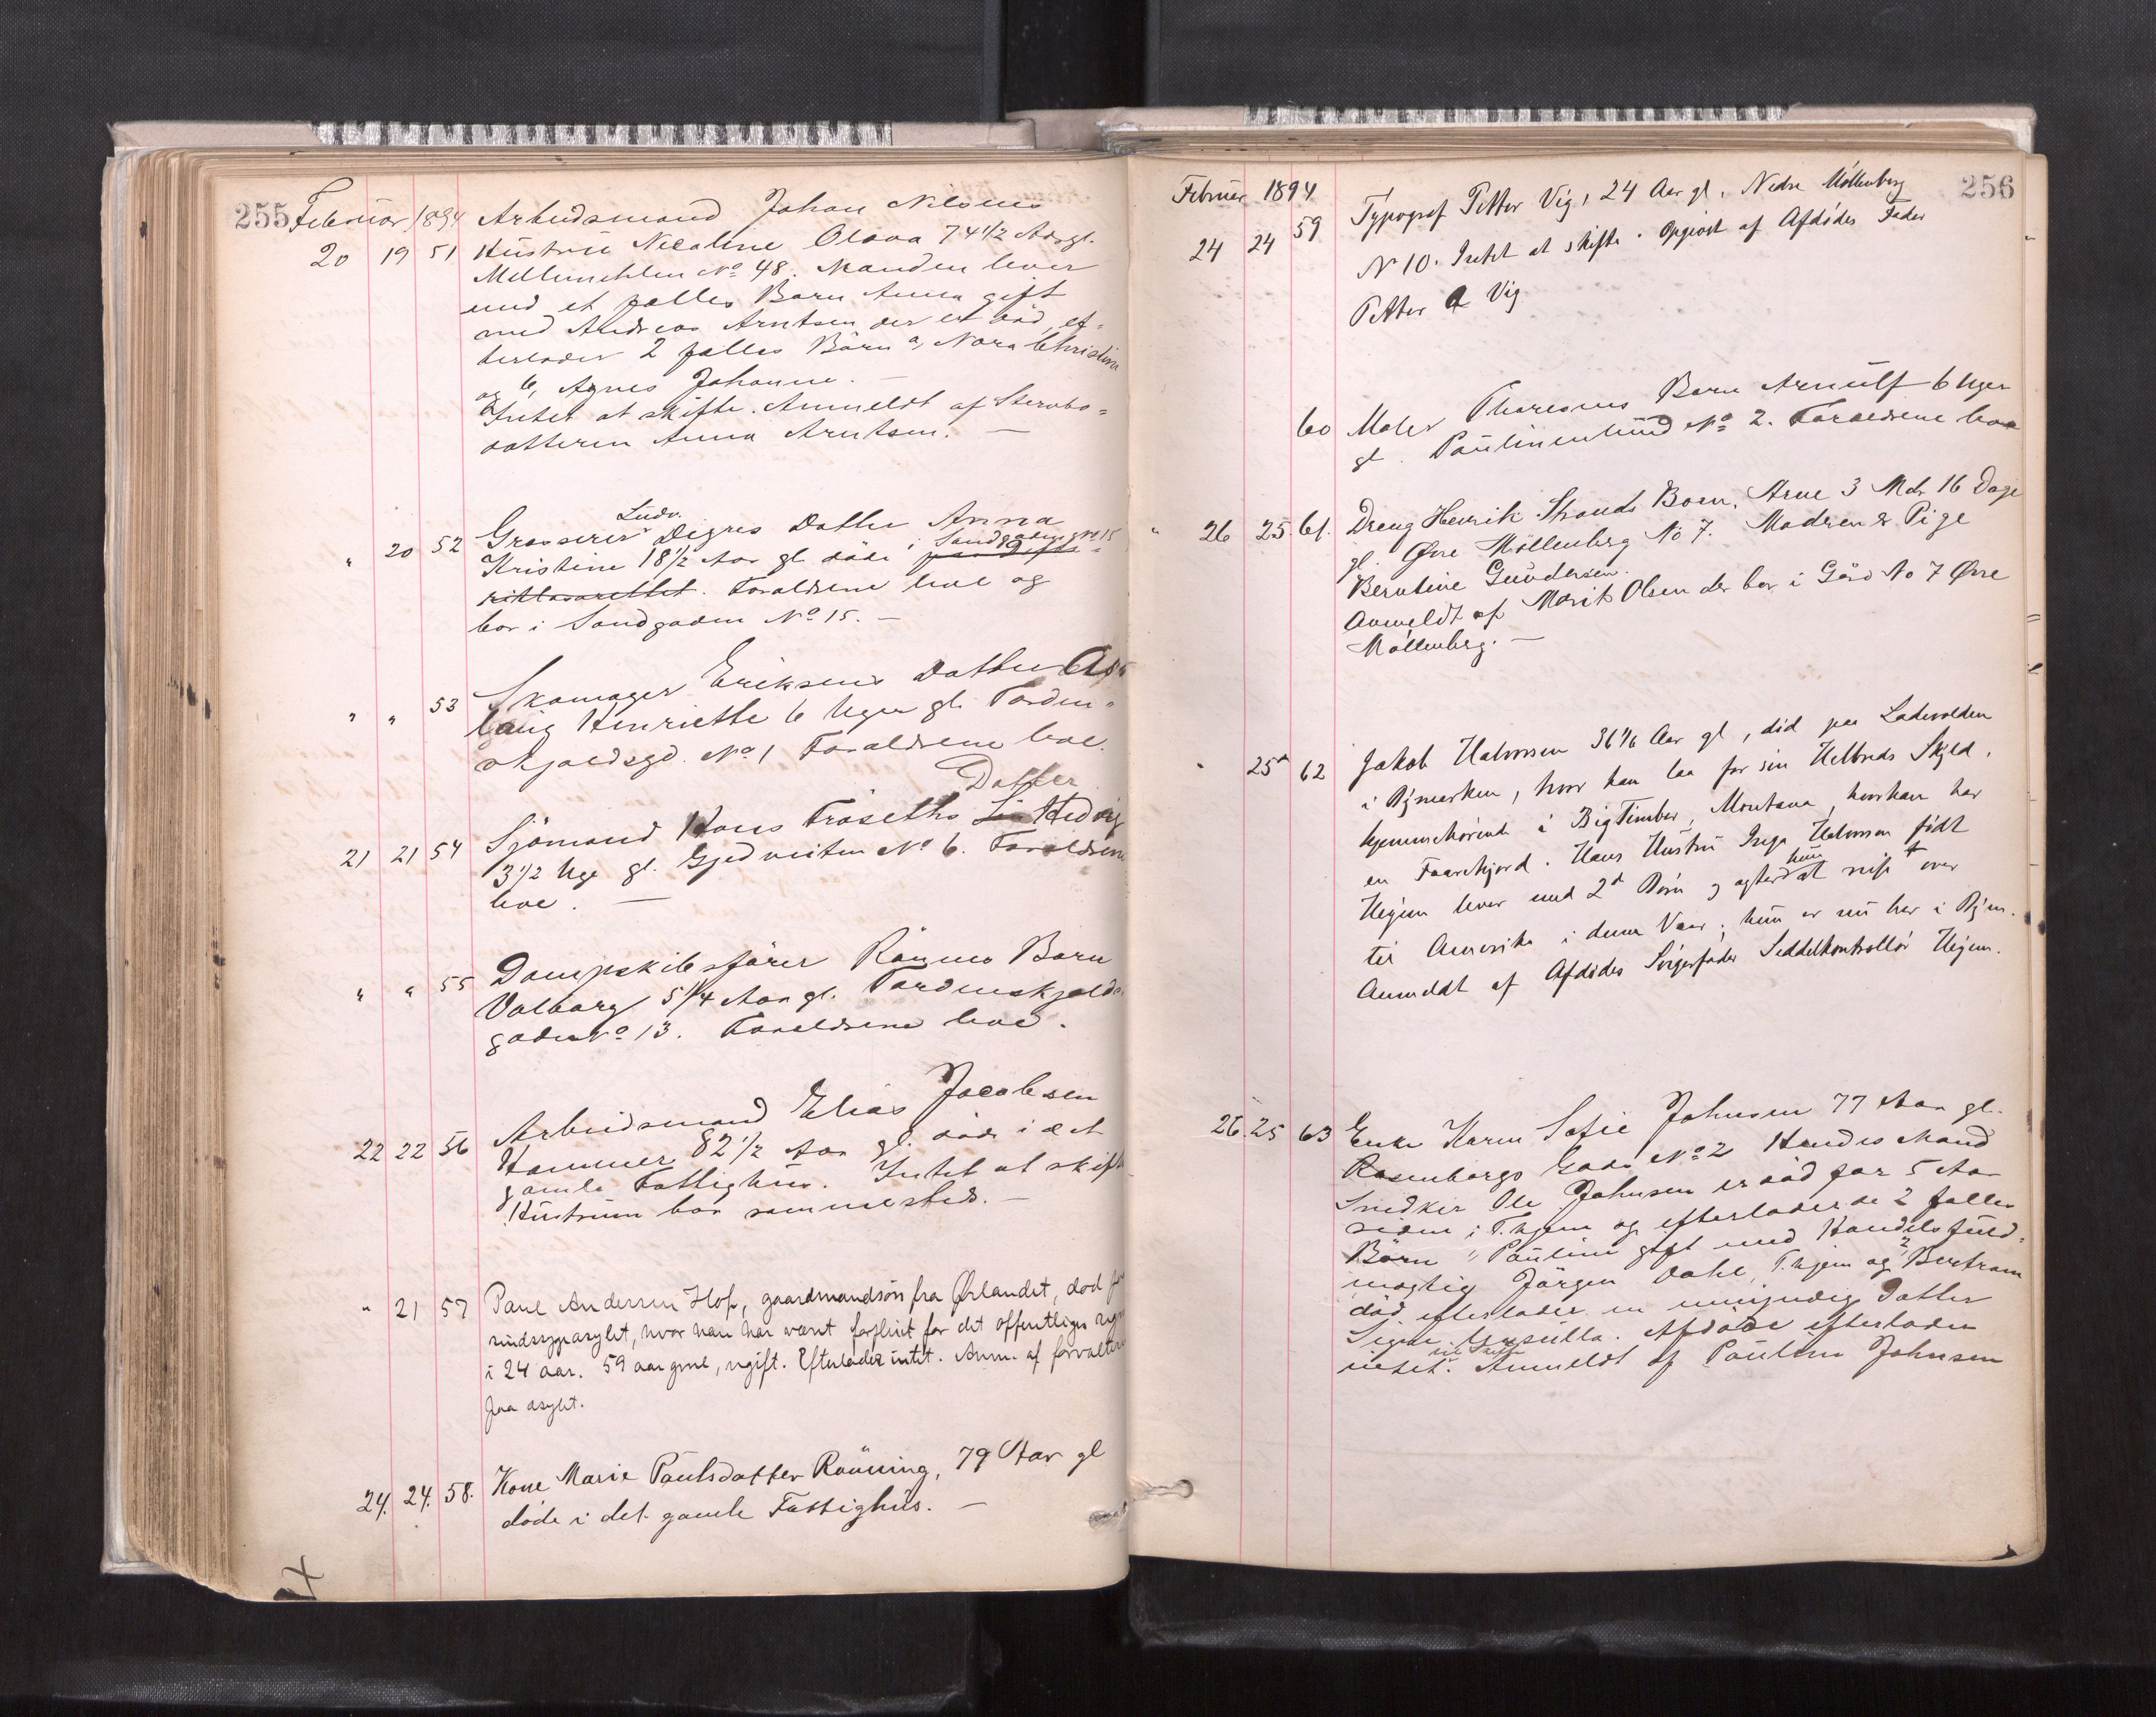 255 Februar 1894 Arbeidsmand Johan Nilsens
20 19 51 Hustru Nicoline Olava 74 1/2 Aar gl.
Mellemveiten No 48. Manden lever
med et fælles Barn Anna gift
med Andreas Arntsen der er död, ef-
terlader 2 fælles Börn a, Nora Christine
og b, Agnes Johanne. —
Intet at skifte. Anmeldt af Stervbo-
datteren Anna Arntsen. —
Ludv.
" 20 52 Grosserer Digres Datter Anna
Kristine 18 1/2 Aar gl. döde i Sandgaden No 15
. Forældrene leve og
bor i Sandgaden No 15. —
" " 53 Skomager Eriksens Datter As
laug Henriette 6 Uger gl. Torden-
skjoldsgd. No 1 Forældrene leve.
Datter
21 21 54 Sjömand Hans Fröseths Hedvig
3 1/2 Uge gl. Gjedveiten No 6. Forældrene
leve. —
" " 55 Dampskibsförer Röymos Barn
Valborg 5 1/4 Aar gl. Tordenskjolds-
gaden No 13. Forældrene leve.
22 22 56 Arbeidsmand Elias Jacobsen
Hammer 82 1/2 Aar gl. döde i det
gamle Fattighus. Intet at skifte
Hustruen bor sammesteds. —
" 21 57 Paul Andersen Hof, gaardmandsön fra Ørlandet, död paa
sindssygeasylet, hvor han har været forpleiet for det offentliges regn
i 24 aar. 59 aar gml, ugift. Efterlader intet. Anm. af forvalteren
paa asylet.
24. 24. 58. Kone Marie Paulsdatter Rönning, 79 Aar gl
döde i det gamle Fattighus. —
Februar 1894 256
24 24 59 Typograf Petter Vig, 24 Aar gl, Nedre Möllenberg
N 10. Intet at skifte. Opgivet af Afdödes Fader
Petter A Vig
60 Maler Thoresens Barn Arnulf 6 Uger
gl. Paulinenlund No 2. Forældrene leve
" 26 25. 61. Dreng Henrik Strands Barn, Arne 3 Mdr 16 Dage
gl. Øvre Möllenberg No 7. Moderen er Pige
Berntine Gundersen.
Anmeldt af Marit Olsen der bor i Gård No 7 Øvre
Möllenberg. —
" 25 62 Jakob Halvorsen 36 4/6 Aar gl, död paa Ladevolden
i Bymarken, hvor han laa for sin Helbreds Skyld,
hjemmehörende i BigTimber, Montana, hvor han har
en Faarehjord. Hans Hustru Inga Halvorsen födt
Hegem lever med 2 Börn og agter hun at reise over
til Amerika i denne Vaar; hun er nu her i Byen.
Anmeldt af Afdödes Svigerfader Seddelkontrollör Hegem.
26. 25 63 Enke Karen Sofie Johnsen 77 Aar gl.
Rosenborgs Gade No 2 Hendes Mand
Snedker Ole Johnsen er död for 5 Aar
siden i T.hjem og efterlader de 2 fælles
Börn 1, Pauline gift med Handelsfuld-
mægtig Jörgen Dahl, T.hjem og 2, Bertram
död efterlader en umyndig Datter
Signe Ursulla. Afdöde efterlader
til Skifte
intet. Anmeldt af Pauline Johnsen